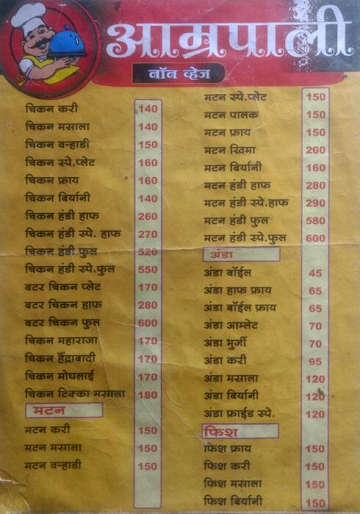 आम्रपाली
नॉन व्हेज
चिकन करी 140
चिकन मसाला 140
चिकन वऱ्हाडी 150
चिकन स्पे.प्लेट 160
चिकन फ्राय 160
चिकन बिर्यानी 140
चिकन हंडी हाफ 260
चिकन हंडी स्पे. हाफ 270
चिकन हंडी फुल 520
चिकन हंडी स्पे.फुल 550
बटर चिकन प्लेट 170
बटर चिकन हाफ 280
बटर चिकन फुल 600
चिकन महाराजा 170
चिकन हैद्राबादी 170
चिकन मोघलाई 170
चिकन टिक्का मसाला 180
मटन
मटन करी 150
मटन मसाला 150
मटन वऱ्हाडी 150
मटन स्पे.प्लेट 150
मटन पालक 150
मटन फ्राय 150
मटन खिमा 200
मटन बिर्यानी 160
मटन हंडी हाफ 280
मटन हंडी स्पे.हाफ 290
मटन हंडी फुल 580
मटन हंडी स्पे.फुल 600
अंडा
अंडा बॉईल 45
अंडा हाफ फ्राय 65
अंडा बॉईल फ्राय 65
अंडा आम्लेट 70
अंडा भुर्जी 70
अंडा करी 95
अंडा मसाला 120
अंडा बिर्यानी 120
अंडा फ्राईड स्पे. 120
फिश
फिश फ्राय 150
फिश करी 150
फिश मसाला 150
फिश बिर्यानी 150